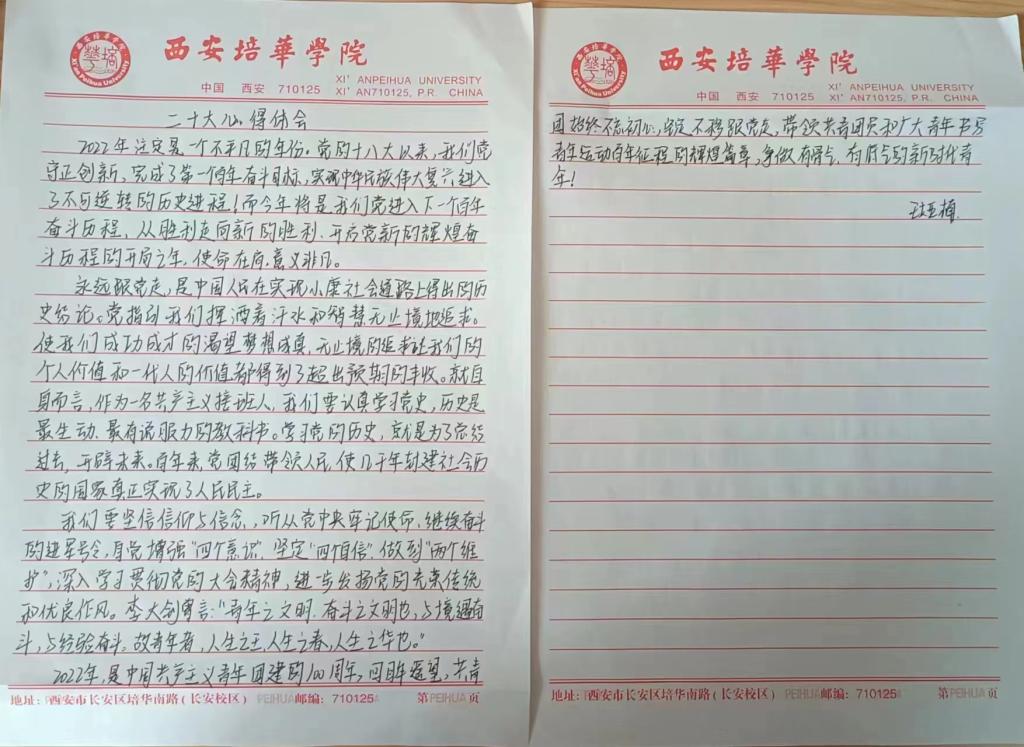 西安培華學院
XI' ANPEIHUA UNIVERSITY
中国 西安 710125 XI' AN710125, P.R. CHINA
二十大心得体会
2022年注定是一个不平凡的年份。党的十八大以来,我们党
守正创新,完成了第一个百年奋斗目标,实现中华民族伟大复兴进入
了不可逆转的历史进程!而今年将是我们党进入下一个百年
奋斗历程,从胜利走向新的胜利、开启党新的辉煌奋
斗历程的开局之年,使命在肩,意义非凡。
永远跟党走,是中国人民在实现小康社会道路上得出的历
史结论。党指引我们挥洒着汗水和智慧无止境地追求。
使我们成功成才的渴望梦想成真,无止境的追求让我们的
个人价值和一代人的价值都得到了超出预期的丰收。就自
身而言,作为一名共产主义接班人,我们要认真学习党史,历史是
最生动、最有说服力的教科书。学习党的历史,就是为了总结
过去,开辟未来。百年来,党团结带领人民,使几千年封建社会历
史的国家真正实现了人民民主。
我们要坚信信仰与信念,听从党中央牢记使命,继续奋斗
的进军号令,自觉增强"四个意识"、坚定"四个自信"、做到"两个维
护",深入学习贯彻党的大会精神,进一步发扬党的光荣传统
和优良作风。李大钊曾言:"青年之文明,奋斗之文明也,与境遇奋
斗,与经验奋斗。故青年者,人生之王,人生之春,人生之华也。"
2022年,是中国共产主义青年团建的100周年,回眸遥望,共青
地址:西安市长安区培华南路(长安校区) 邮编:710125 第 页
西安培華學院
XI' ANPEIHUA UNIVERSITY
中国 西安 710125 XI' AN710125, P.R. CHINA
团始终不忘初心,坚定不移跟党走,带领共青团员和广大青年书写
青年运动百年征程的辉煌篇章,争做有骨气、有底气的新时代青
年!
地址:西安市长安区培华南路(长安校区) 邮编:710125 第 页